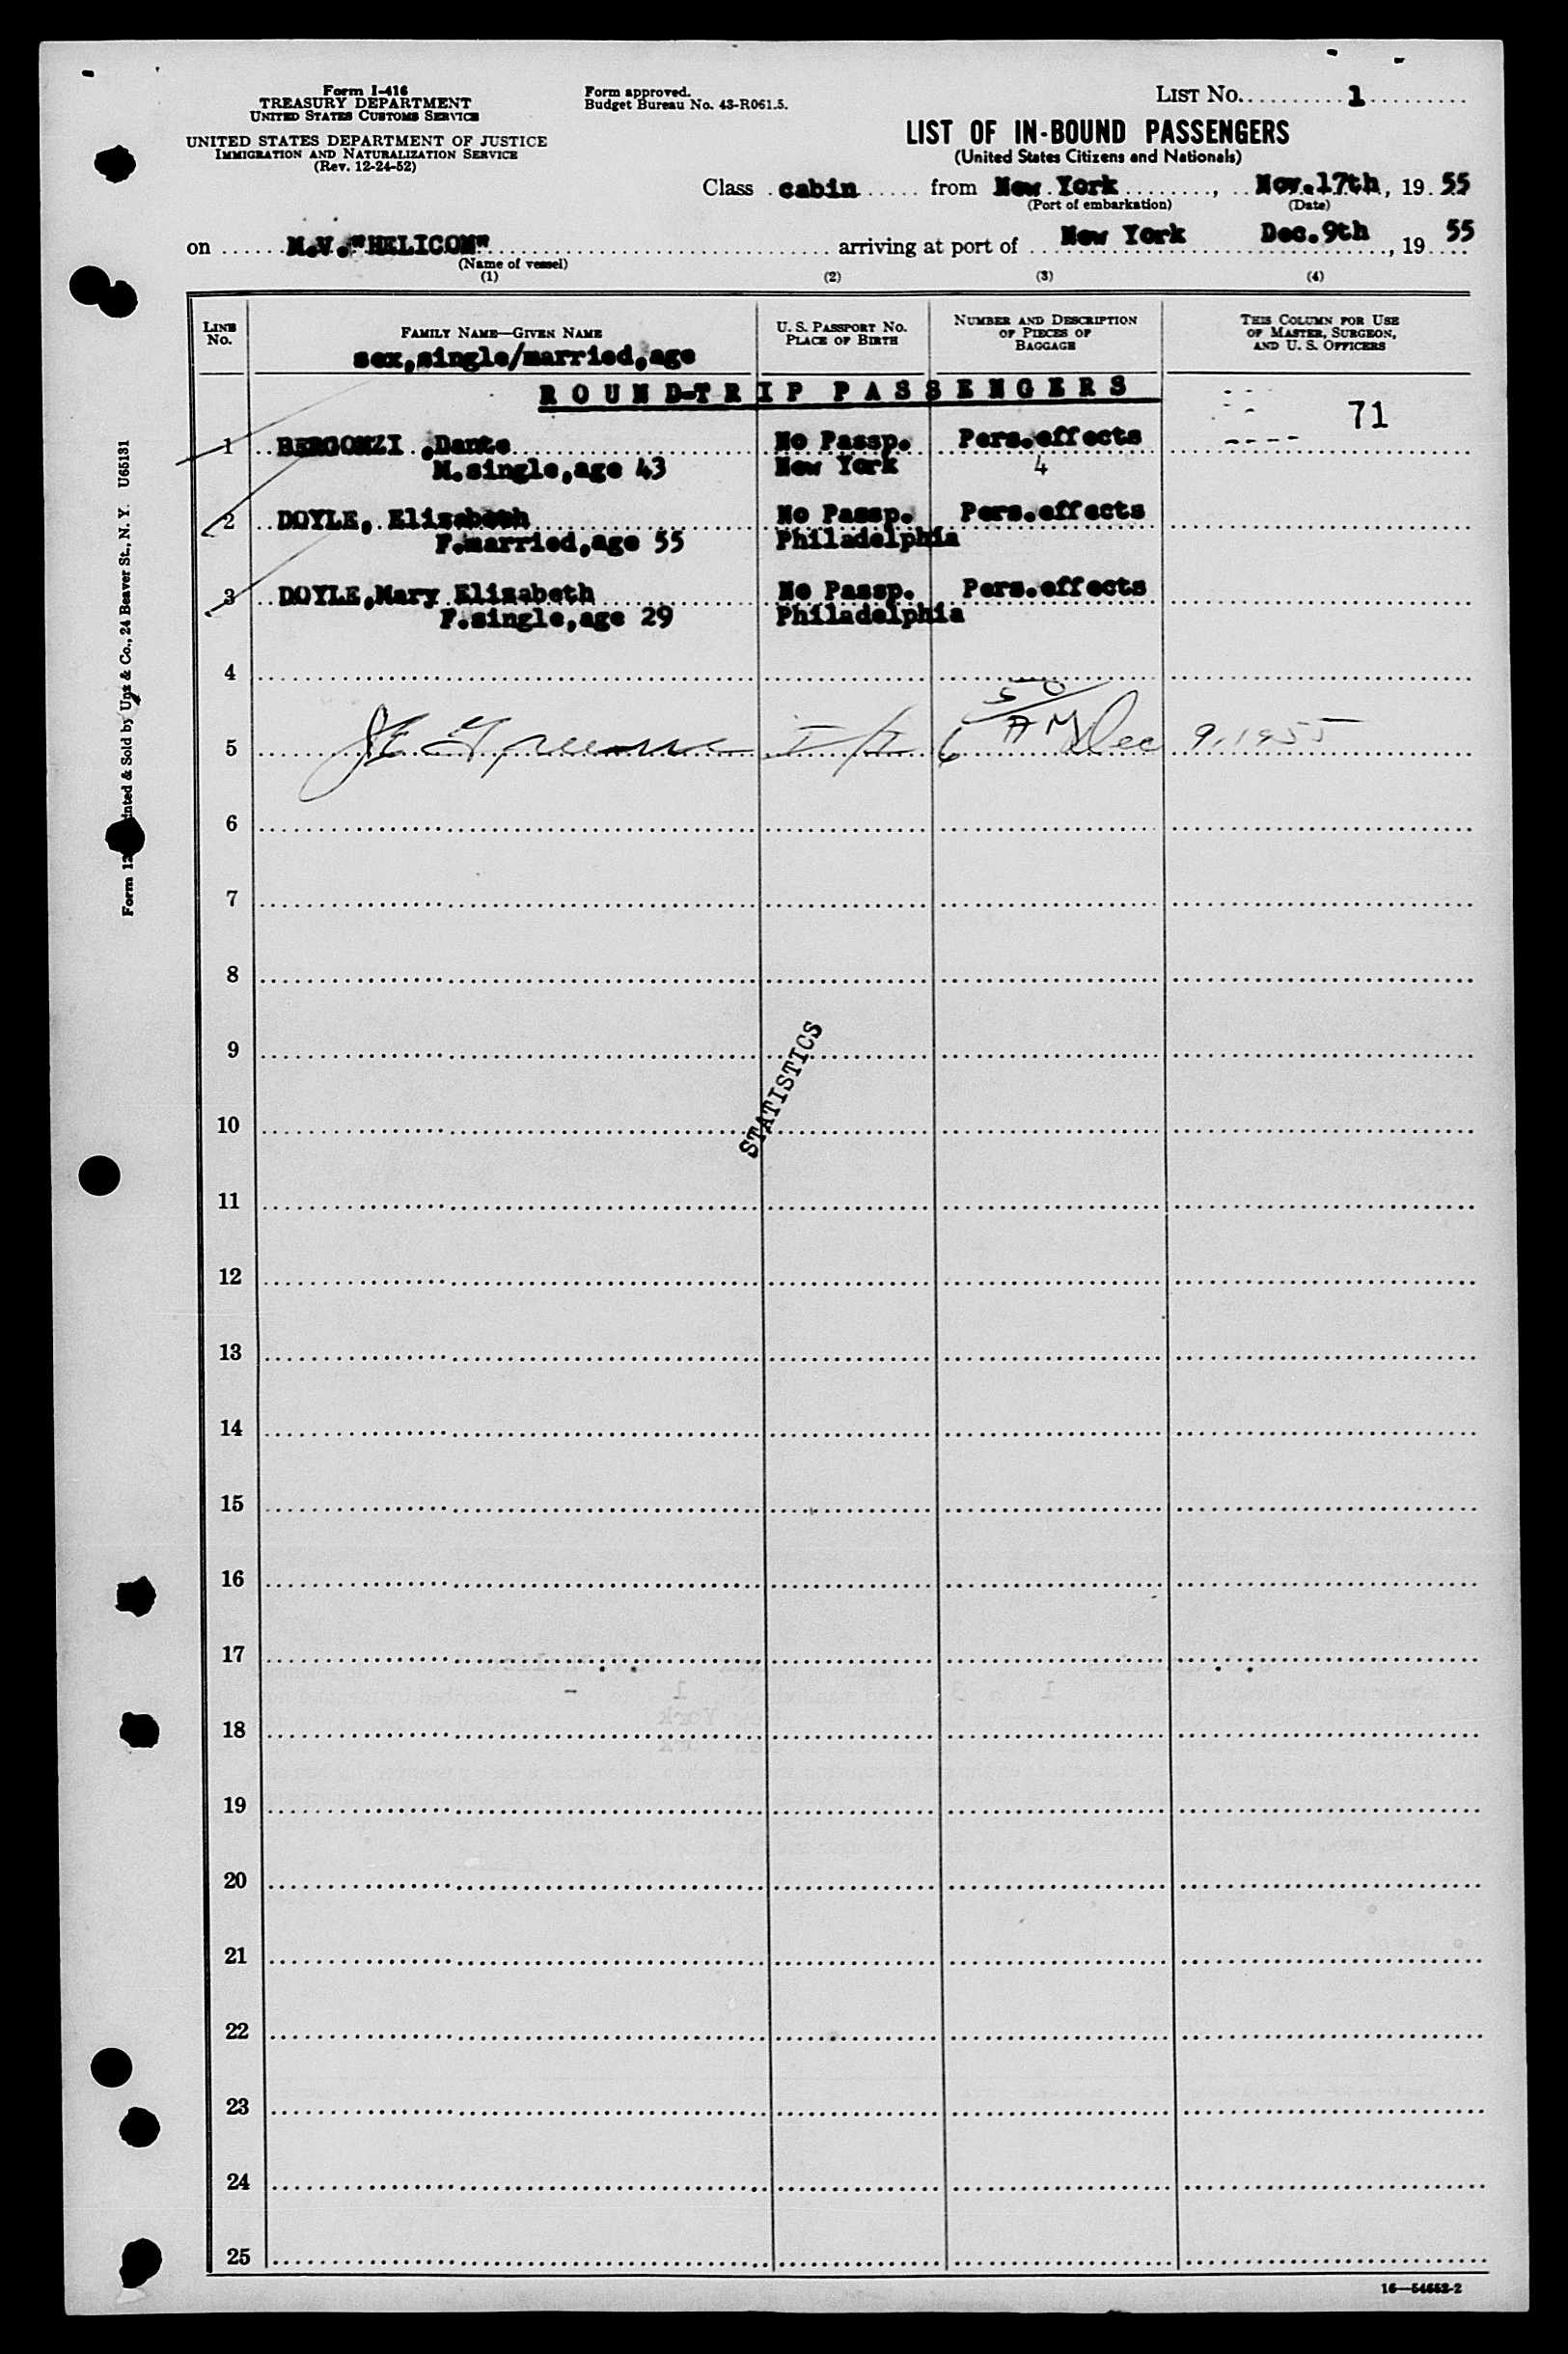 Form I-416
TREASURY DEPARTMENT
UNITED STATES CUSTOMS SERVICE
UNITED STATES DEPARTMENT OF JUSTICE
IMMIGRATION AND NATURALIZATION SERVICE
(Rev. 12-24-52)
Form approved.
Budget Bureau No. 43-R061.5.
LIST No. 1
LIST OF IN-BOUND PASSENGERS
(United States Citizens and Nationals)
Class cabin from New York, Nov.17th, 19 55
(Port of embarkation) (Date)
on M.V."HELICON" arriving at port of New York Dec.9th, 19 55
(Name of vessel)
(1) (2) (3) (4)
LINE No. FAMILY NAME—GIVEN NAME U. S. PASSPORT No. PLACE OF BIRTH NUMBER AND DESCRIPTION OF PIECES OF BAGGAGE THIS COLUMN FOR USE OF MASTER, SURGEON, AND U. S. OFFICERS
sex,single/married,age
ROUND-TRIP PASSENGERS
71
1 BERGONZI ,Dante No Passp. Pers.effects
M.single,age 43 New York 4
2 DOYLE, Elizabeth No Passp. Pers.effects
F.married,age 55 Philadelphia
3 DOYLE,Mary Elizabeth No Passp. Pers.effects
F.single,age 29 Philadelphia
4
50
5 6 AM Dec 9, 1955
6
7
8
9
STATISTICS
10
11
12
13
14
15
16
17
18
19
20
21
22
23
24
25
16—54652-2
Printed & Sold by Unz & Co., 24 Beaver St., N. Y. U65131